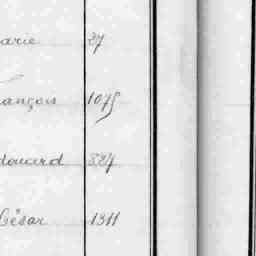 arie 27
ançois 1075
douard 587
César 1311